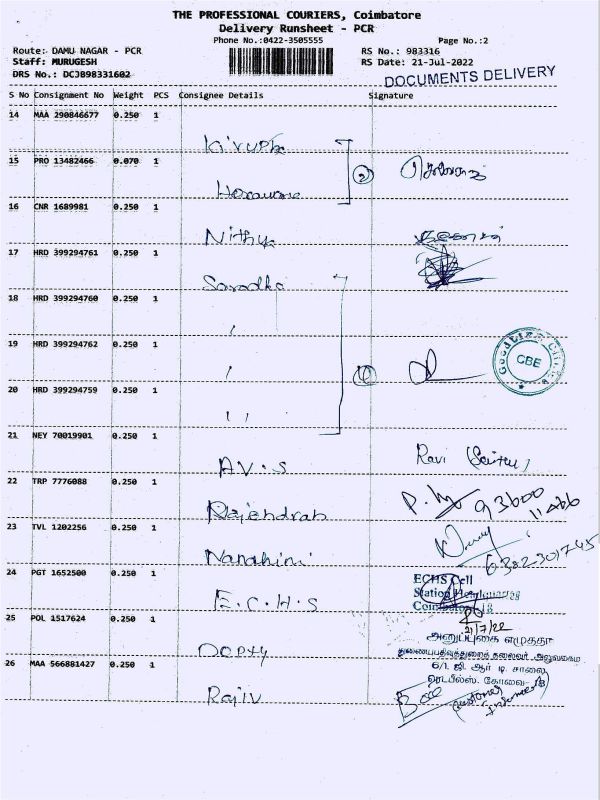 THE PROFESSIONAL COURIERS, Coimbatore
Delivery Runsheet - PCR
Phone No.:0422-3505555
Page No.:2
Route: DAMU NAGAR - PCR
RS No.: 983316
Staff: MURUGESH
RS Date: 21-Jul-2022
DRS No.: DCJB98331602
DOCUMENTS DELIVERY
S No Consignment No Weight PCS Consignee Details Signature
14 MAA 290846677 0.250 1
15 PRO 13482466 0.070 1
2
16 CNR 1689981 0.250 1
Nithya
17 HRD 399294761 0.250 1
Saradha
18 HRD 399294760 0.250 1
19 HRD 399294762 0.250 1
4
GBE
20 HRD 399294759 0.250 1
21 NEY 70019901 0.250 1
A.V.S Ravi
22 TRP 7776088 0.250 1
Rajendran 93600
23 TVL 1202256 0.250 1
Nandhini 6382301745
24 PGT 1652500 0.250 1
E.C.H.S
ECHS Cell
Station Headquarters
Coimbatore-18
21/7/22
25 POL 1517624 0.250 1
அனுப்புகை எழுத்தர்
துணைப்பதிவுத்துறைத் தலைவர் அலுவலகம்
6/1. ஜி. ஆர். டி. சாலை
கோவை-18
26 MAA 566881427 0.250 1
Rajiv